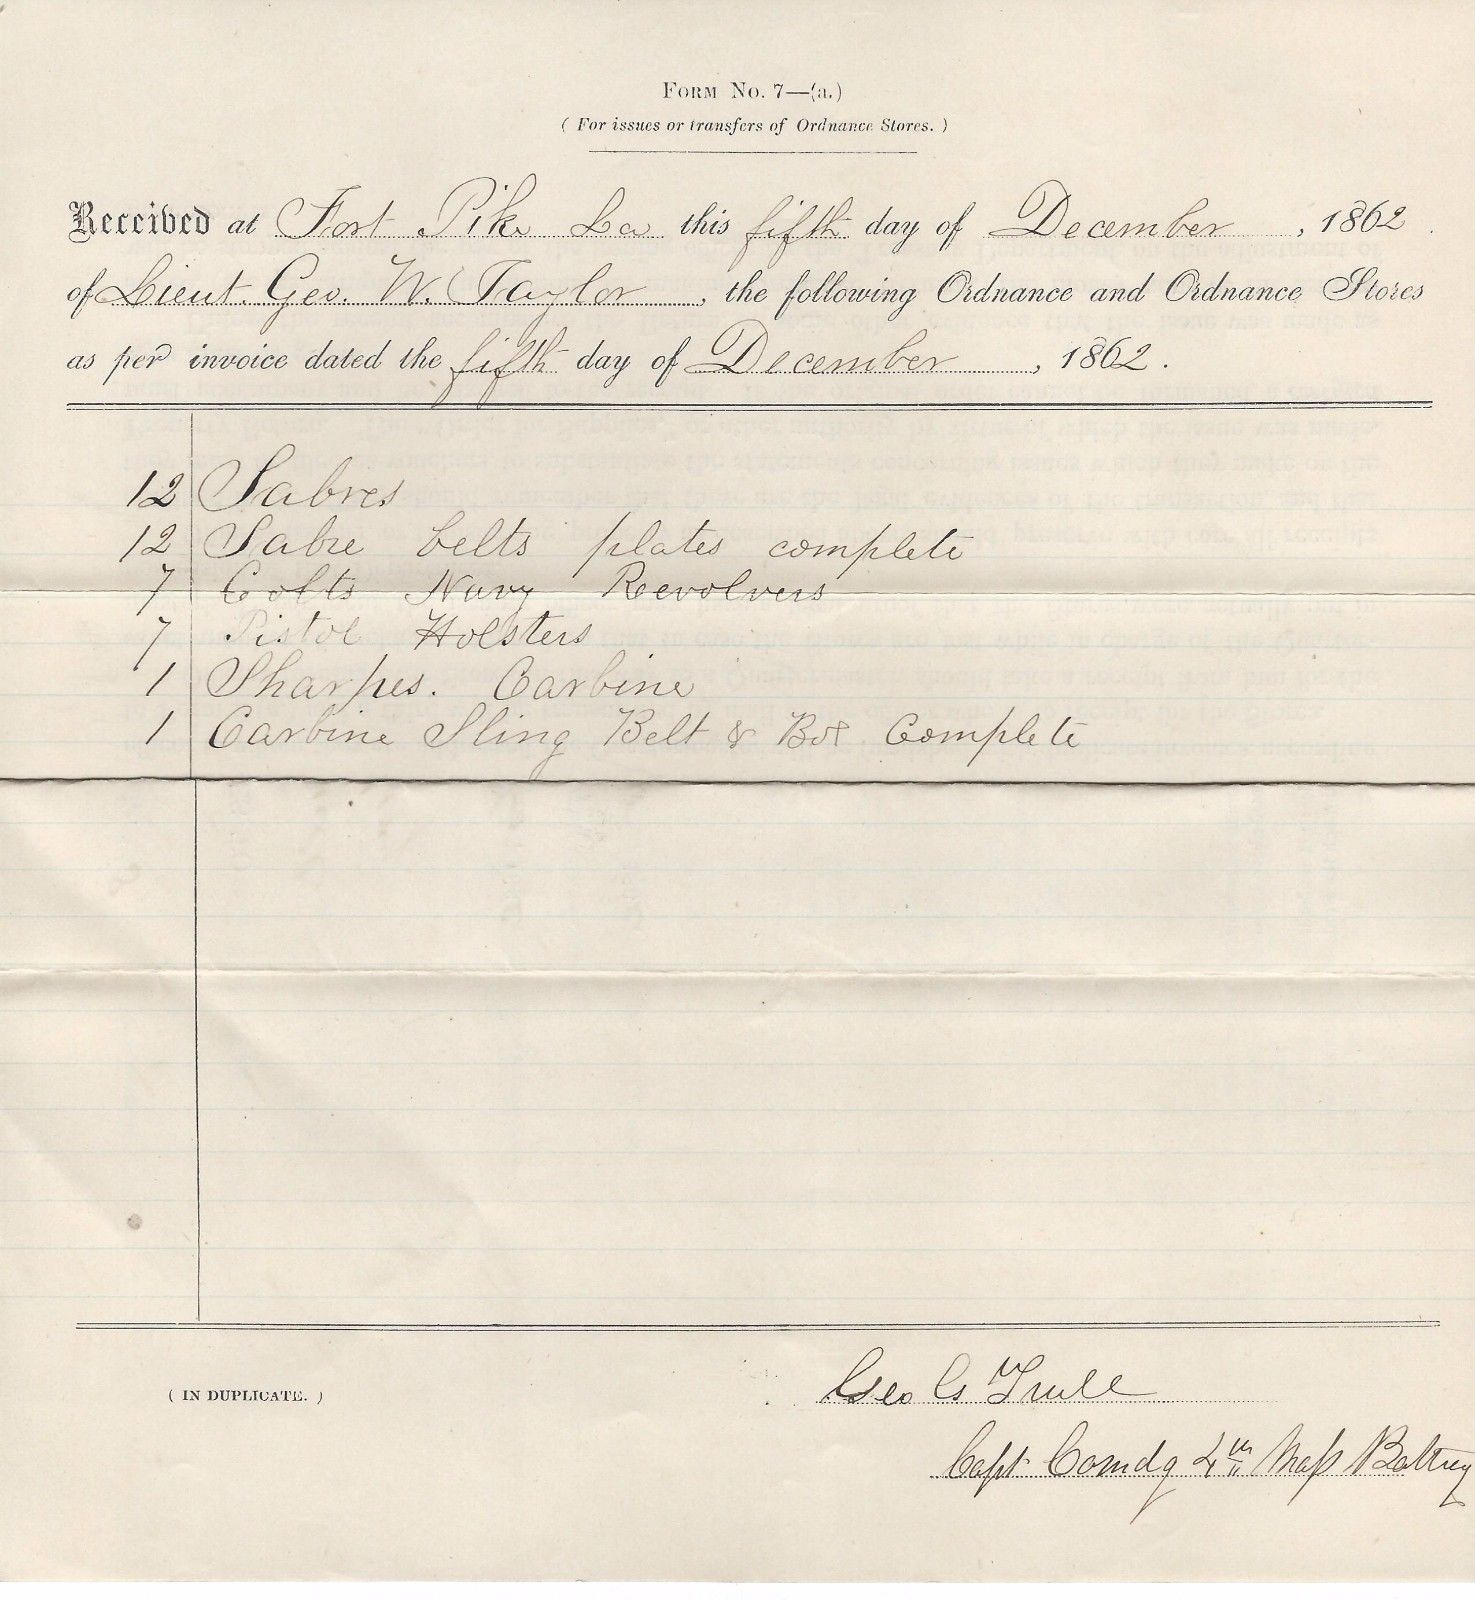 FORM No. 7—(a.)
( For issues or transfers of Ordnance Stores. )
Received at Fort Pike La this fifth day of December, 1862.
of Lieut. Geo. W. Taylor, the following Ordnance and Ordnance Stores
as per invoice dated the fifth day of December, 1862.
12 Sabres
12 Sabre belts plates complete
7 Colts Navy Revolvers
7 Pistol Holsters
1 Sharpes. Carbine
1 Carbine Sling Belt & Box Complete
( IN DUPLICATE. )
Geo G Trull
Capt Comdg 4th Mass Battery